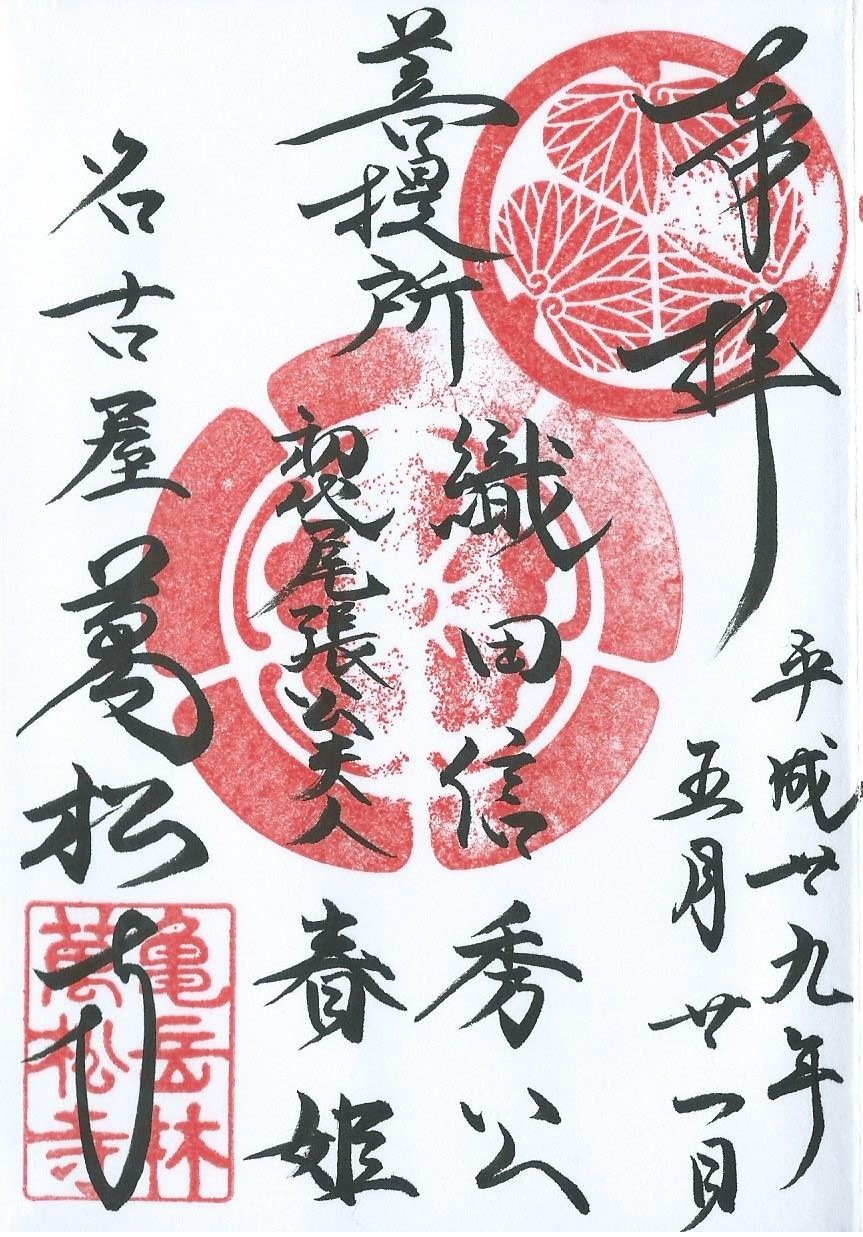 奉拝
平成廿九年
五月廿一日
菩提所
織田信秀公
初代尾張公夫人
春姫
名古屋 萬松寺
亀岳林
萬松寺